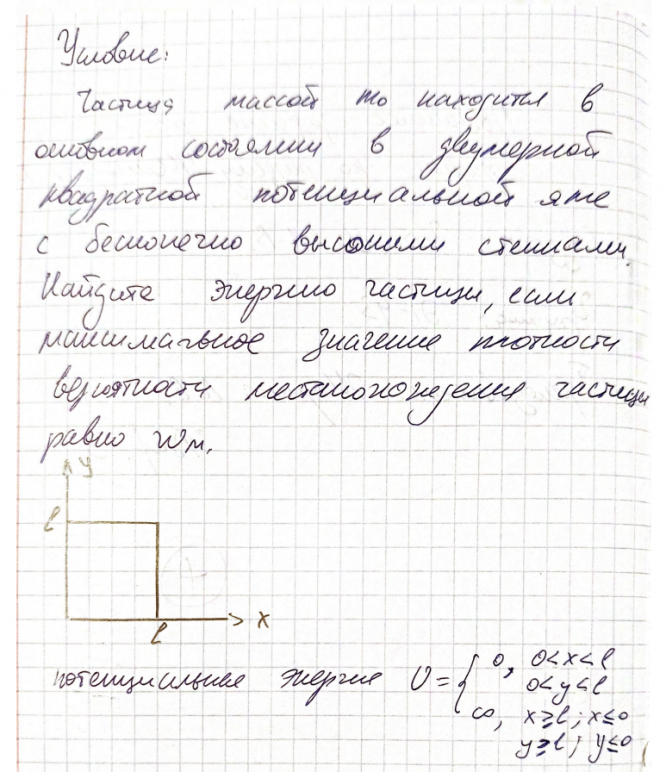 Условие:
Частица массой m₀ находится в
основном состоянии в двумерной
квадратной потенциальной яме
с бесконечно высокими стенками.
Найдите энергию частицы, если
максимальное значение плотности
вероятности местанохождения частицы
равно wм.
y
l
l
x
потенциальная энергия U = { 0, 0<x<l
0<y<l
∞, x≥l; x≤0
y≥l; y≤0